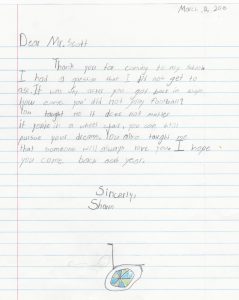 March 2, 2010
Dear Mr. Scott
Thank you for coming to my school
I had a question that I did not get to
ask. It was why after you got back in
how come you did not play football?
You taught me it does not matter
if you're in a wheel chair, you can still
pursue your dreams. You also taught me
that someone will always love you. I hope
you come back next year.
Sincerly,
Shawn